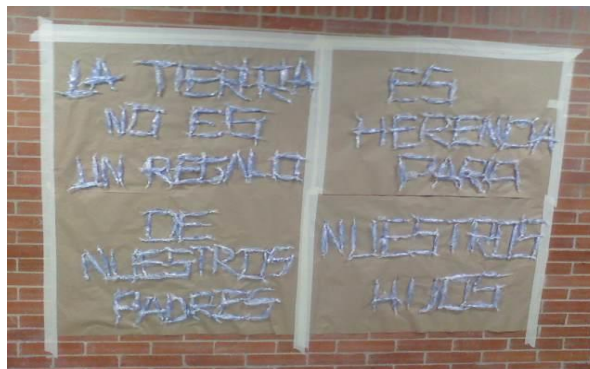 LA TIERRA
NO ES
UN REGALO
DE
NUESTROS
PADRES
ES
HERENCIA
PARA
NUESTROS
HIJOS